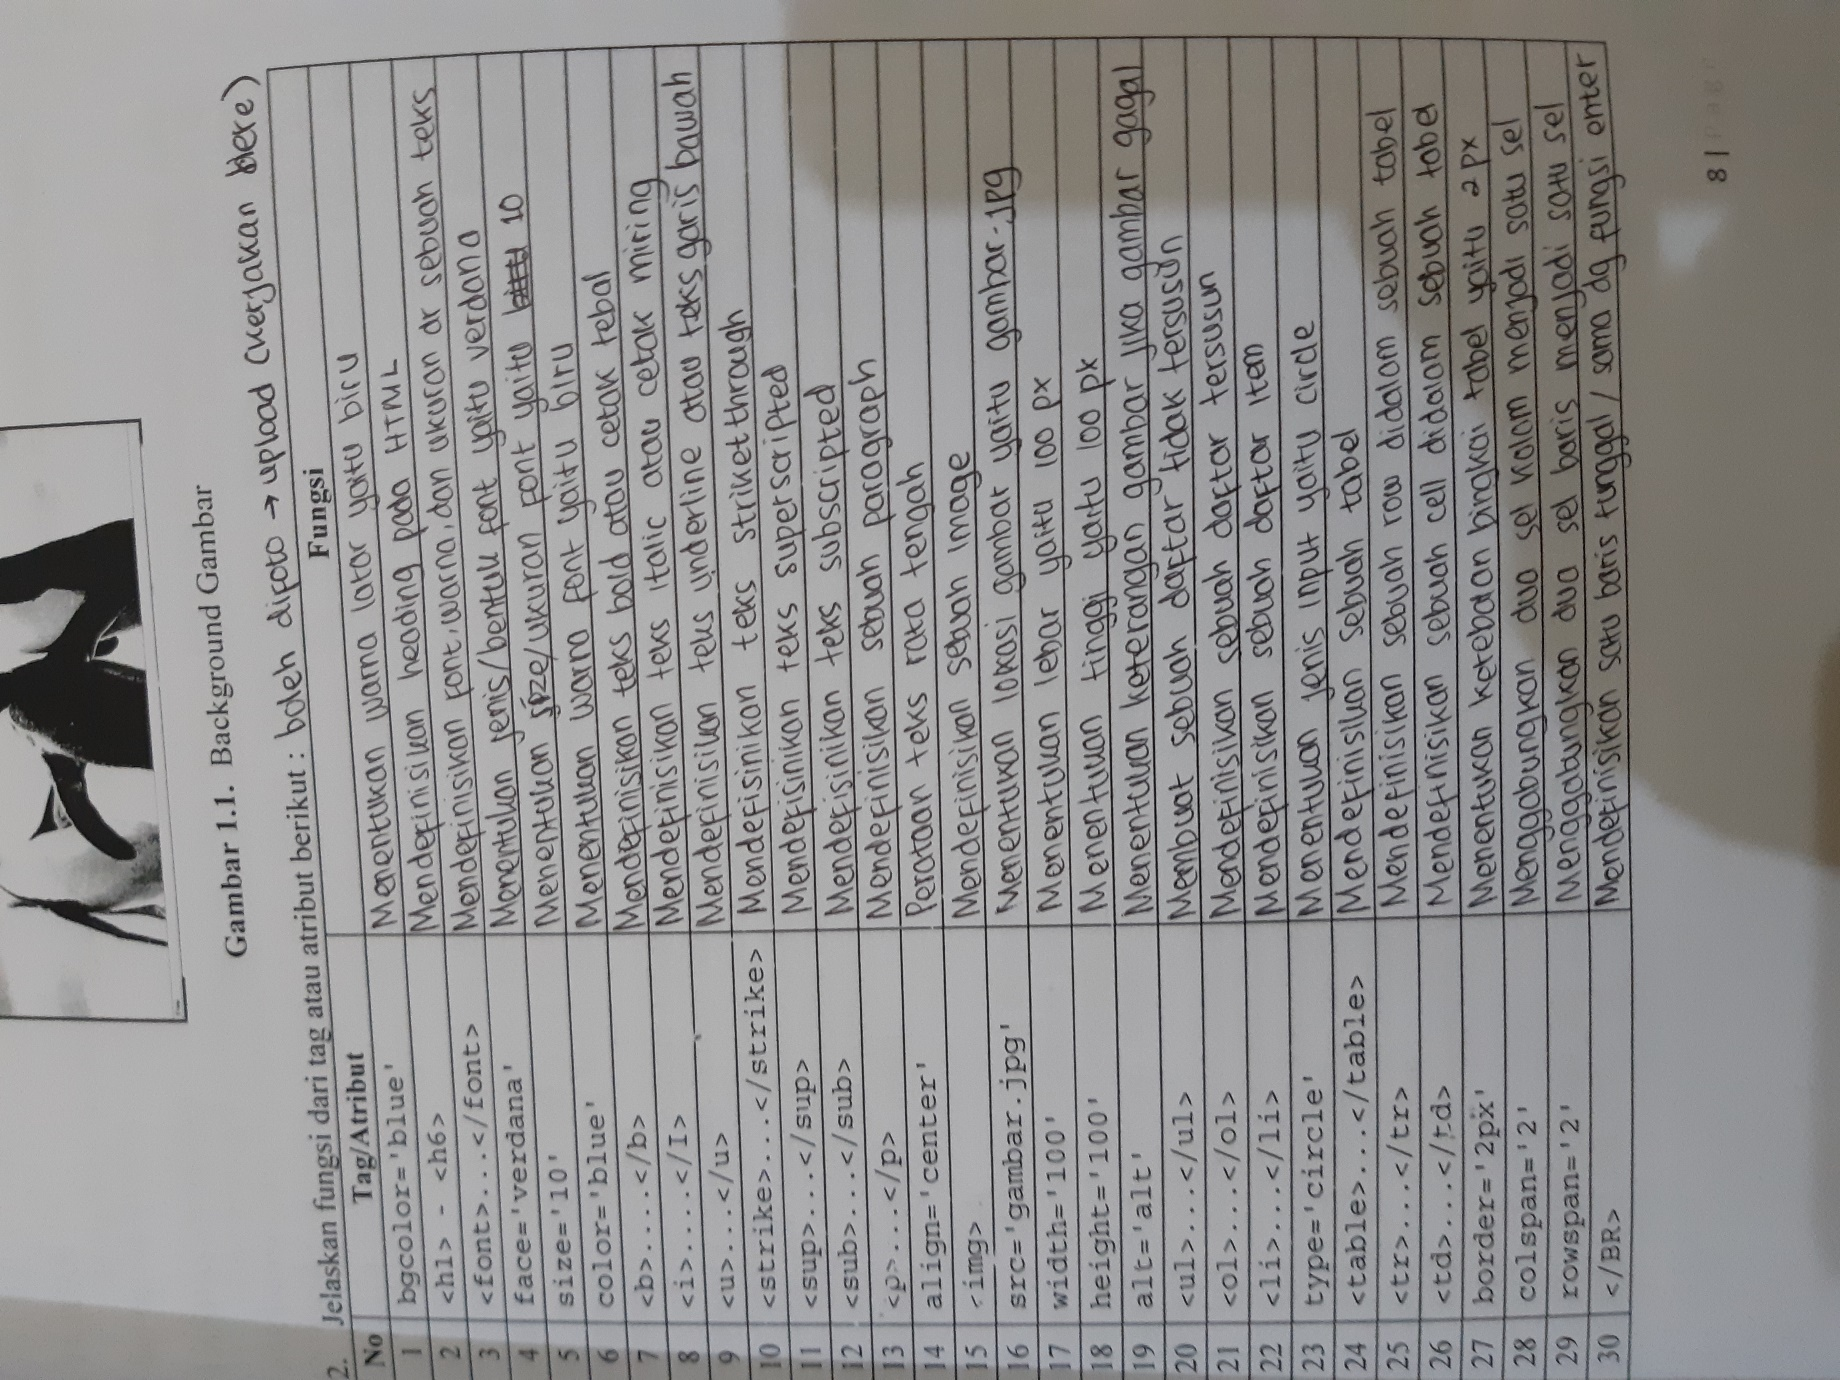 Gambar 1.1. Background Gambar
2. Jelaskan fungsi dari tag atau atribut berikut : boleh difoto → upload (kerjakan here)
No Tag/Atribut Fungsi
1 bgcolor='blue' Menentukan warna latar yaitu biru
2 <h1> - <h6> Mendefinisikan heading pada HTML
3 <font>...</font> Mendefinisikan font, warna, dan ukuran dr sebuah teks
4 face='verdana' Menentukan jenis/bentuk font yaitu verdana
5 size='10' Menentukan size/ukuran font yaitu 10
6 color='blue' Menentukan warna font yaitu biru
7 <b>...</b> Mendefinisikan teks bold atau cetak tebal
8 <i>...</I> Mendefinisikan teks italic atau cetak miring
9 <u>...</u> Mendefinisikan teks underline atau teks garis bawah
10 <strike>...</strike> Mendefisinikan teks striketthrough
11 <sup>...</sup> Mendefisinikan teks superscripted
12 <sub>...</sub> Mendefisinikan teks subscripted
13 <p>...</p> Mendefinisikan sebuah paragraph
14 align='center' Perataan teks rata tengah
15 <img> Mendefinisikan sebuah image
16 src='gambar.jpg' Menentukan lokasi gambar yaitu gambar.jpg
17 width='100' Menentukan lebar yaitu 100 px
18 height='100' Menentukan tinggi yaitu 100 px
19 alt='alt' Menentukan keterangan gambar jika gambar gagal
20 <ul>...</ul> Membuat sebuah daftar tidak tersusun
21 <ol>...</ol> Mendefinisikan sebuah daftar tersusun
22 <li>...</li> Mendefinisikan sebuah daftar item
23 type='circle' Menentukan jenis input yaitu circle
24 <table>...</table> Mendefinisikan sebuah tabel
25 <tr>...</tr> Mendefinisikan sebuah row didalam sebuah tabel
26 <td>...</td> Mendefinisikan sebuah cell didalam sebuah tabel
27 border='2px' Menentukan ketebalan bingkai tabel yaitu 2 px
28 colspan='2' Menggabungkan dua sel kolom menjadi satu sel
29 rowspan='2' Menggabungkan dua sel baris menjadi satu sel
30 </BR> Mendefinisikan satu baris tunggal / sama dg fungsi enter
8 | Page